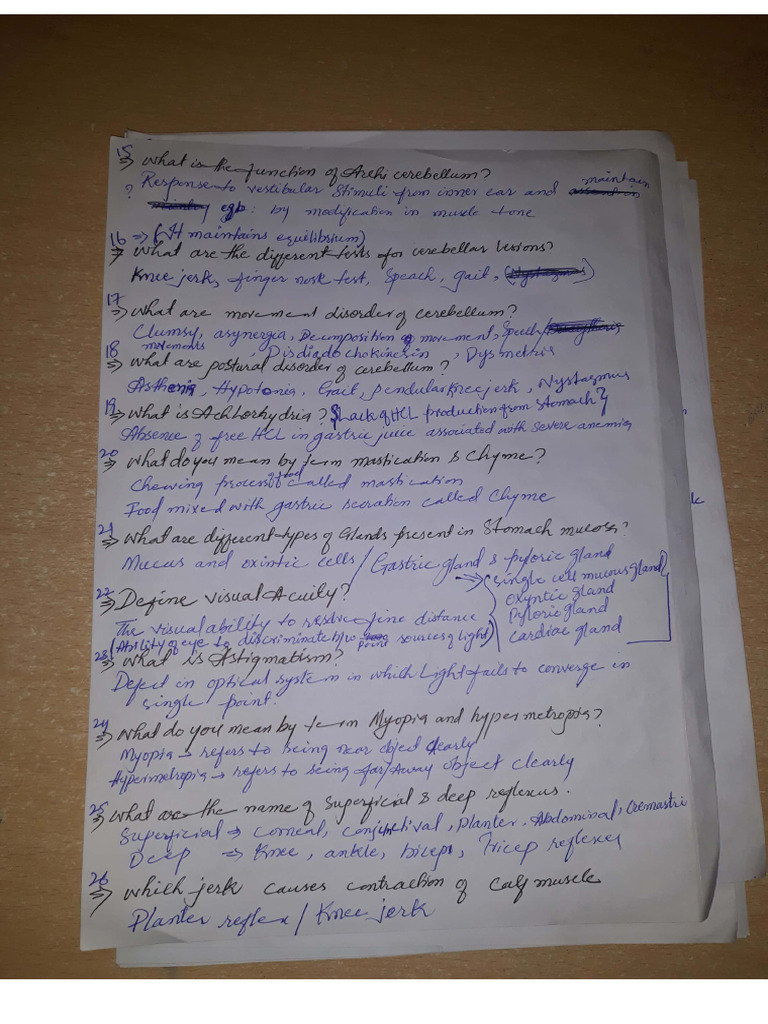 15
⇒ What is the function of Archi cerebellum?
? Response to vestibular stimuli from inner ear and maintain
eqb: by modification in muscle tone
16 ⇒ (It maintains equilibrium)
⇒ What are the different tests for cerebellar lesions?
Knee jerk, finger nose test, Speach, gait,
17
⇒ What are movement disorder of cerebellum?
Clumsy movements, asynergia, Decomposition of movement, Speech/
18 , Disdiadochokinesin, Dysmetria
⇒ What are postural disorder of cerebellum?
Asthenia, Hypotonia, Gait, pendular knee jerk, Nystagmus
19
⇒ What is Achlorhydria? { Lack of HCL production from stomach}
Absence of free HCL in gastric juice associated with severe anemia
20
⇒ What do you mean by term mastication & chyme?
Chewing process of food called mastication
Food mixed with gastric secration called Chyme
21
⇒ What are different types of Glands present in Stomach mucosa?
Mucus and oxintic cells / Gastric gland & pyloric gland
→ single cell mucous gland
oxyntic gland
Pyloric gland
cardiac gland
22
⇒ Define visual Acuity?
The visual ability to resolve fine distance
(Ability of eye to discriminate b/w point sources of light)
23
⇒ What is Astigmatism?
Defect in optical system in which Light fails to converge in
single point.
24
⇒ What do you mean by term Myopia and hypermetropia?
Myopia → refers to seing near object clearly
Hypermetropia → refers to seing far/Away object clearly
25
⇒ What are the name of Superficial & deep reflexus.
Superficial ⇒ corneal, conjunctival, Planter, Abdominal, Cremastri
Deep ⇒ Knee, ankle, bicep, Tricep reflexes
26
⇒ Which jerk causes contraction of calf muscle
Planter reflex / Knee jerk